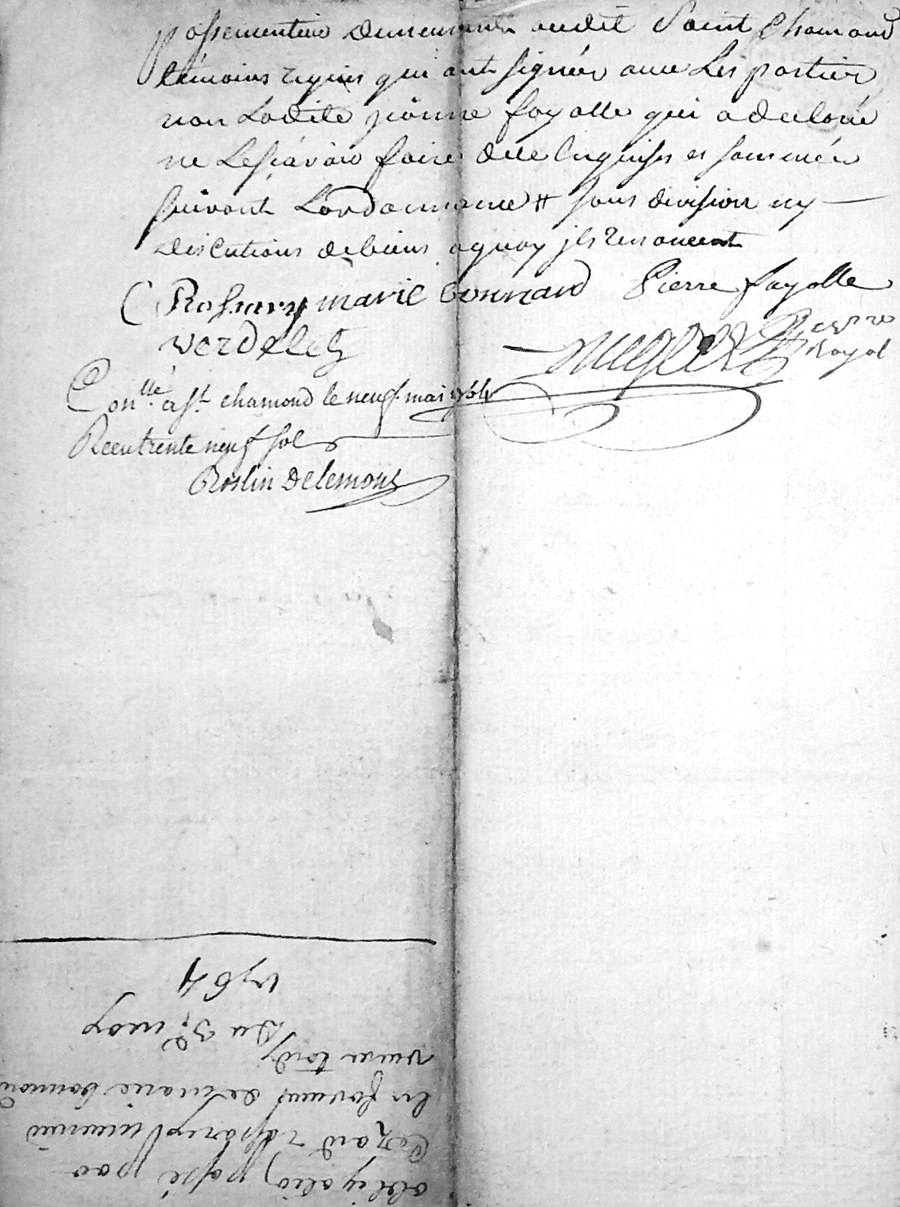 passementier demeurants audit Saint Chamond
témoins requis qui ont signées avec Les parties
non Ladite jeanne fayolle qui a declaré
ne Lesçavoir faire de ce Enquises et sommée
suivant L'ordonnance # sans division ny —
discutions de biens aquoy jls renoncent
Rossary marie bonnard Pierre fayolle
verdelet
no.re
Royal
Con.llé a S.t chamond le neuf mai 1764
Receu trente neuf sols
Roslin Delemont
obligation passé par
en faveur de marie bonnard
Du 3.e may
1764